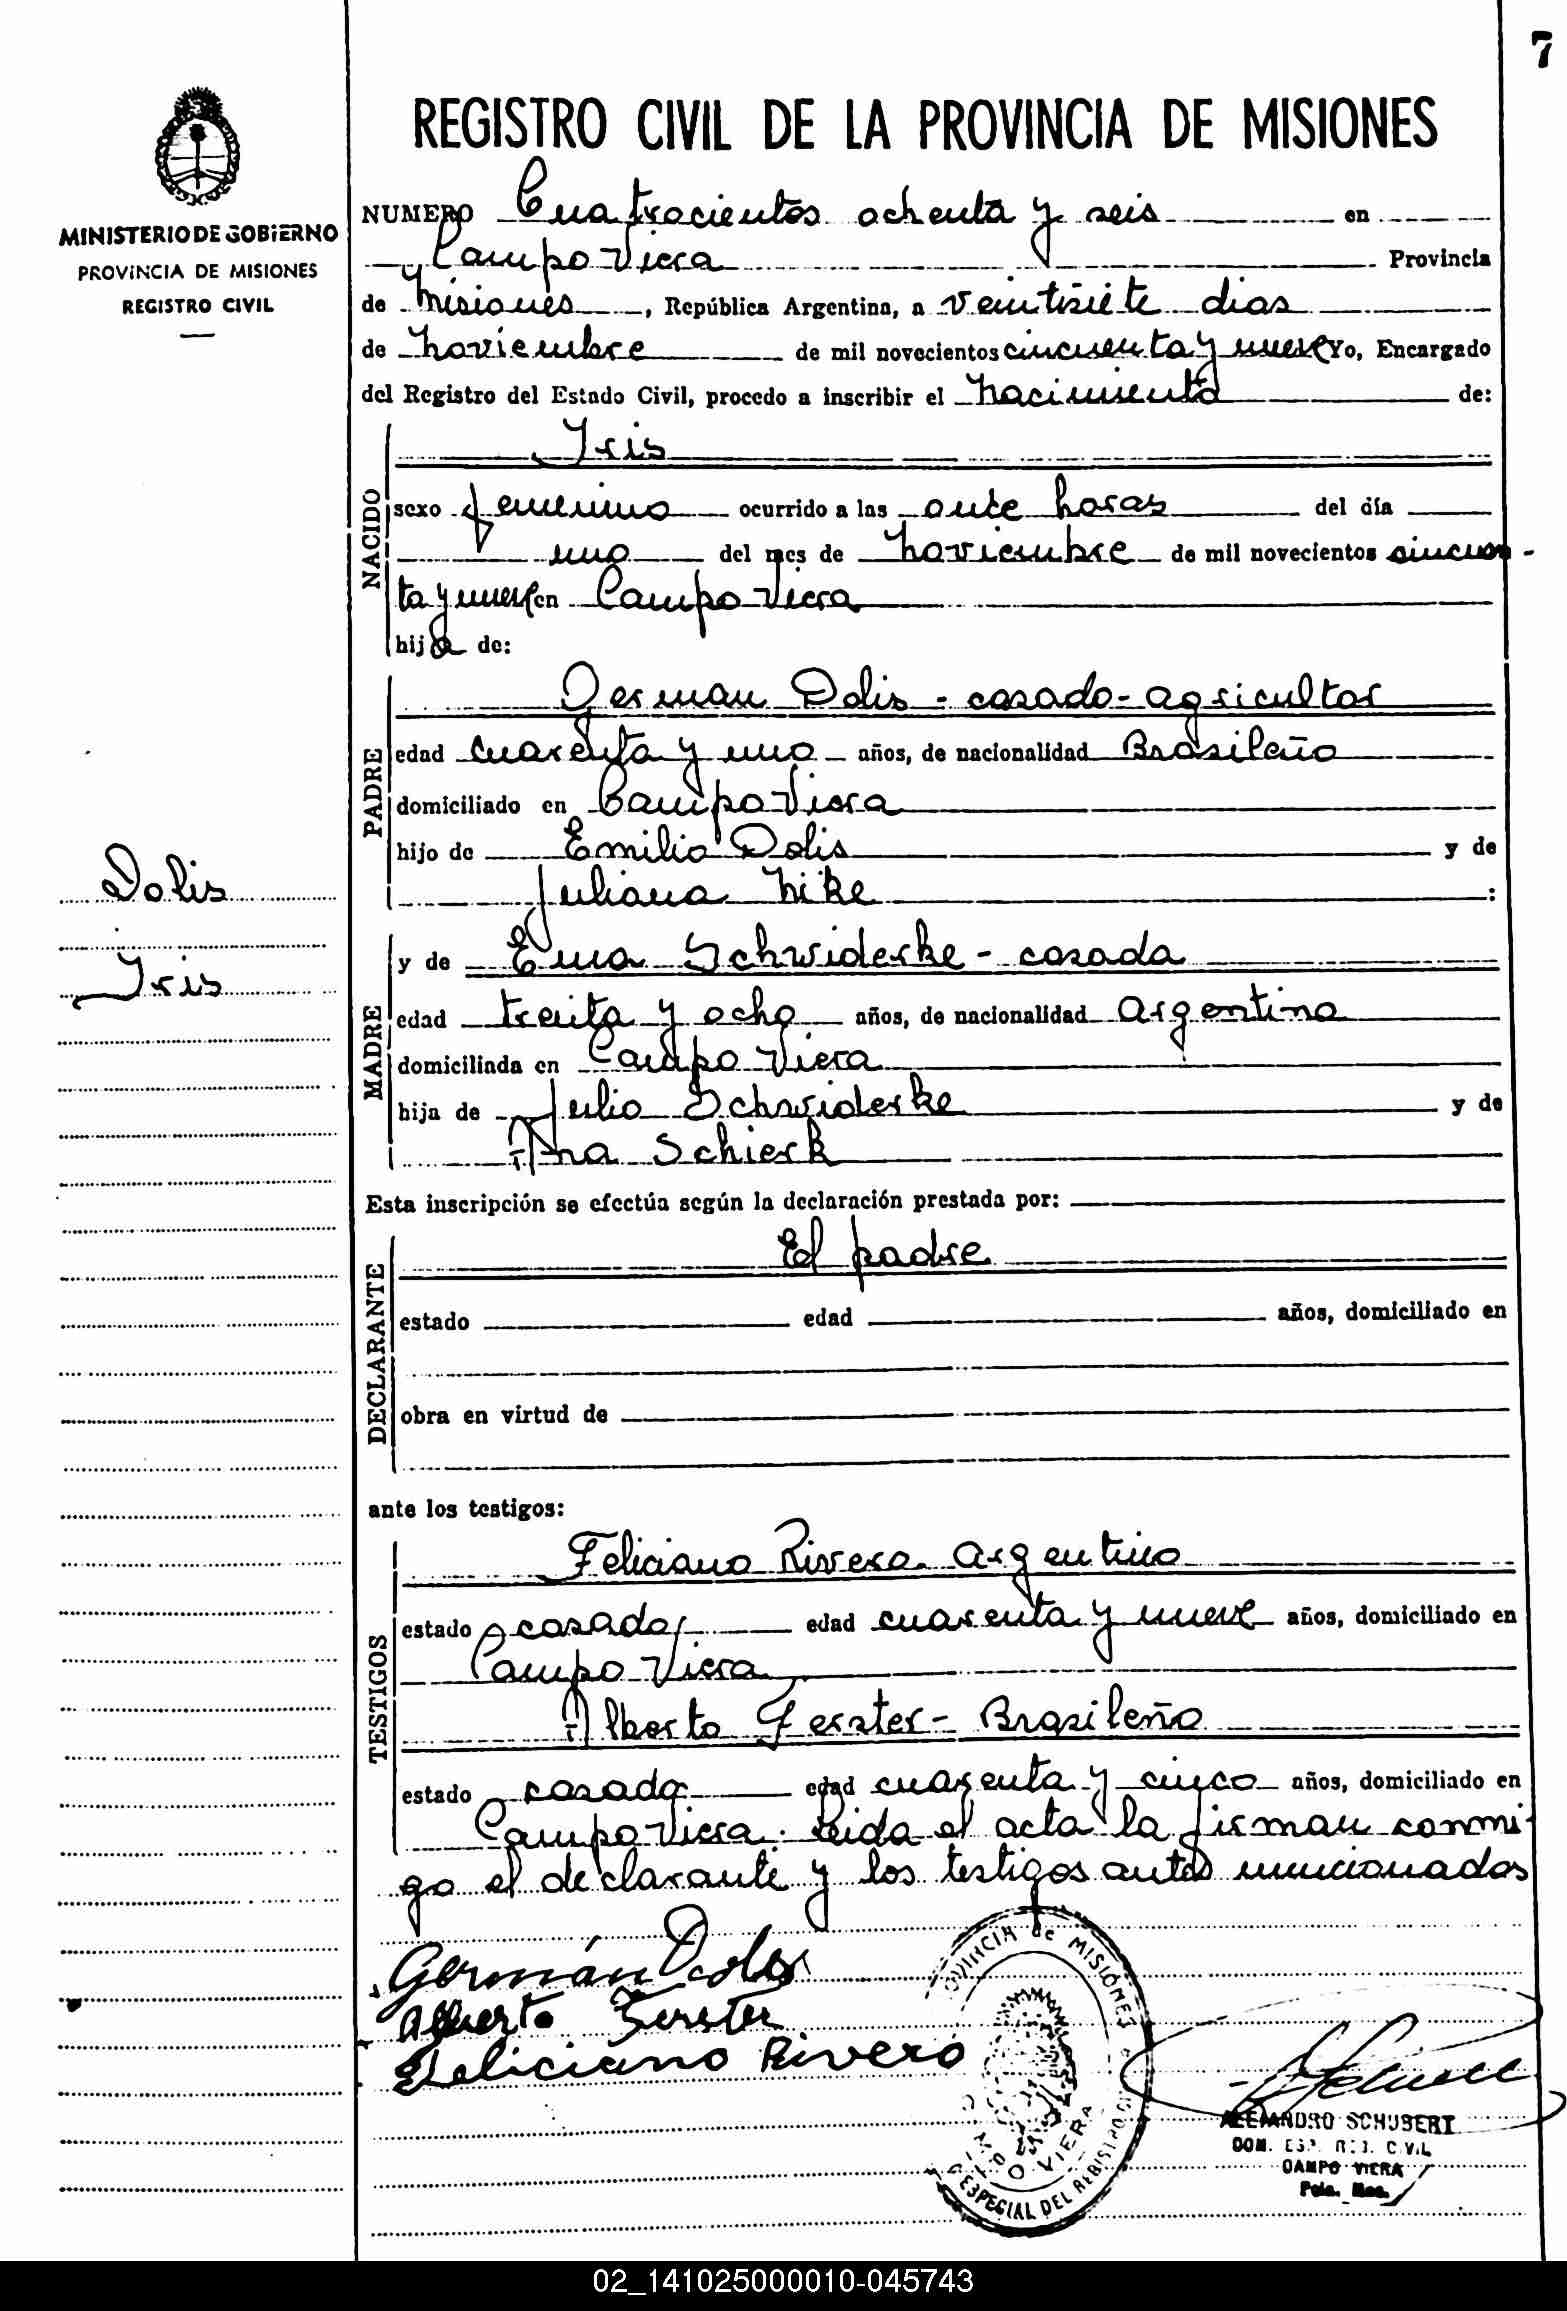 7
REGISTRO CIVIL DE LA PROVINCIA DE MISIONES
MINISTERIO DE GOBIERNO
PROVINCIA DE MISIONES
REGISTRO CIVIL
NUMERO Cuatrocientos ochenta y seis en
Campo Viera Provincia
de Misiones, República Argentina, a veintisiete dias
de noviembre de mil novecientos cincuenta y nueve Yo, Encargado
del Registro del Estado Civil, procedo a inscribir el nacimiento de:
Iris
NACIDO
sexo femenino ocurrido a las once horas del día
uno del mes de noviembre de mil novecientos cincuen-
ta y nueve en Campo Viera
hija de:
PADRE
German Dolis - casado - agricultor
edad cuarenta y uno años, de nacionalidad Brasileño
domiciliado en Campo Viera
hijo de Emilio Dolis y de
Juliana Nike :
Dolis
Iris
MADRE
y de Ema Schwiderke - casada
edad treita y ocho años, de nacionalidad Argentina
domiciliada en Campo Viera
hija de Julio Schwiderke y de
Ana Schierk
Esta inscripción se efectúa según la declaración prestada por:
DECLARANTE
El padre
estado edad años, domiciliado en
obra en virtud de
ante los testigos:
TESTIGOS
Feliciano Rivero Argentino
estado casado edad cuarenta y nueve años, domiciliado en
Campo Viera
Alberto Ferster - Brasileño
estado casado edad cuarenta y cinco años, domiciliado en
Campo Viera. Leida el acta la firman conmi-
go el declarante y los testigos antes mencionados
Germán Dolis
Alberto Ferster
Feliciano Rivero
PROVINCIA de MISIONES
CAMPO VIERA
ESPECIAL DEL REGISTRO CIVIL
ALEJANDRO SCHUBERT
CAMPO VIERA
Pcia. Mnes.
02_141025000010-045743